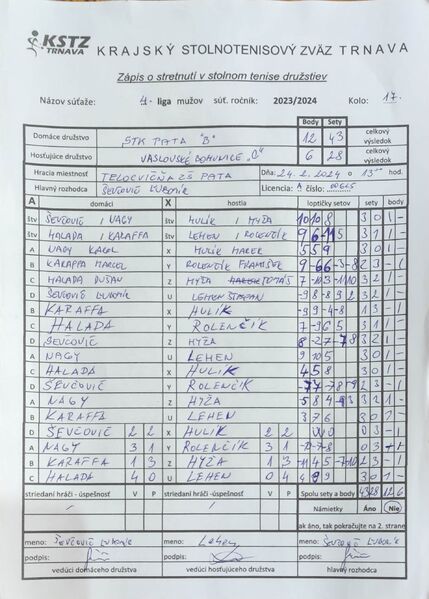 KSTZ TRNAVA KRAJSKÝ STOLNOTENISOVÝ ZVÄZ TRNAVA
Zápis o stretnutí v stolnom tenise družstiev
Názov súťaže: 4. liga mužov súť. ročník: 2023/2024 Kolo: 17.
Body Sety
Domáce družstvo STK PATA "B" 12 43 celkový výsledok
Hosťujúce družstvo JASLOVSKÉ BOHUNICE "C" 6 28 celkový výsledok
Hracia miestnosť TELOCVIČŇA ZŠ PATA Dňa: 24.2.2024 o 13 00 hod.
Hlavný rozhodca ŠEVČOVIČ ĽUBOMÍR Licencia A číslo:
A domáci X hostia loptičky setov sety body
štv ŠEVČOVIČ / NAGY štv HULÍK / HÝŽA 10 10 8 3 0 1 -
štv HALADA / KARAFFA štv LEHEN / ROLENČÍK 3 1 1 -
A NAGY KAROL X HULÍK MAREK 5 5 9 3 0 1 -
B KARAFFA MARCEL Y ROLENČÍK FRANTIŠEK 9 -6 6 -3 -8 2 3 - 1
C HALADA DUŠAN Z HÝŽA TOMÁŠ 3 2 1 -
D ŠEVČOVIČ ĽUBOMÍR U LEHEN ŠTEFAN -9 8 -8 9 2 3 2 1 -
B KARAFFA X HULÍK -9 9 -4 -8 1 3 - 1
C HALADA Y ROLENČÍK 7 -9 6 5 3 1 1 -
D ŠEVČOVIČ Z HÝŽA 8 -2 7 -7 8 3 2 1 -
A NAGY U LEHEN 9 10 5 3 0 1 -
C HALADA X HULÍK 4 5 8 3 0 1 -
D ŠEVČOVIČ Y ROLENČÍK 2 3 - 1
A NAGY Z HÝŽA -5 8 4 -9 3 3 2 1 -
B KARAFFA U LEHEN 3 7 6 3 0 1 -
D ŠEVČOVIČ 2 2 X HULÍK 2 2 W O 0 3 - 1
A NAGY 3 1 Y ROLENČÍK 3 1 0 3
B KARAFFA 1 3 Z HÝŽA 1 3 -11 4 5 -7 -10 2 3 - 1
C HALADA 4 0 U LEHEN 0 4 4 9 9 3 0 1 -
striedaní hráči - úspešnosť V P striedaní hráči - úspešnosť V P Spolu sety a body 43 28 12 6
/ / Námietky Áno Nie
ak áno, tak pokračujte na 2. strane
meno: ŠEVČOVIČ ĽUBOMÍR meno: Lehen meno: ŠEVČOVIČ ĽUBOMÍR
podpis: podpis: podpis:
vedúci domáceho družstva vedúci hosťujúceho družstva hlavný rozhodca